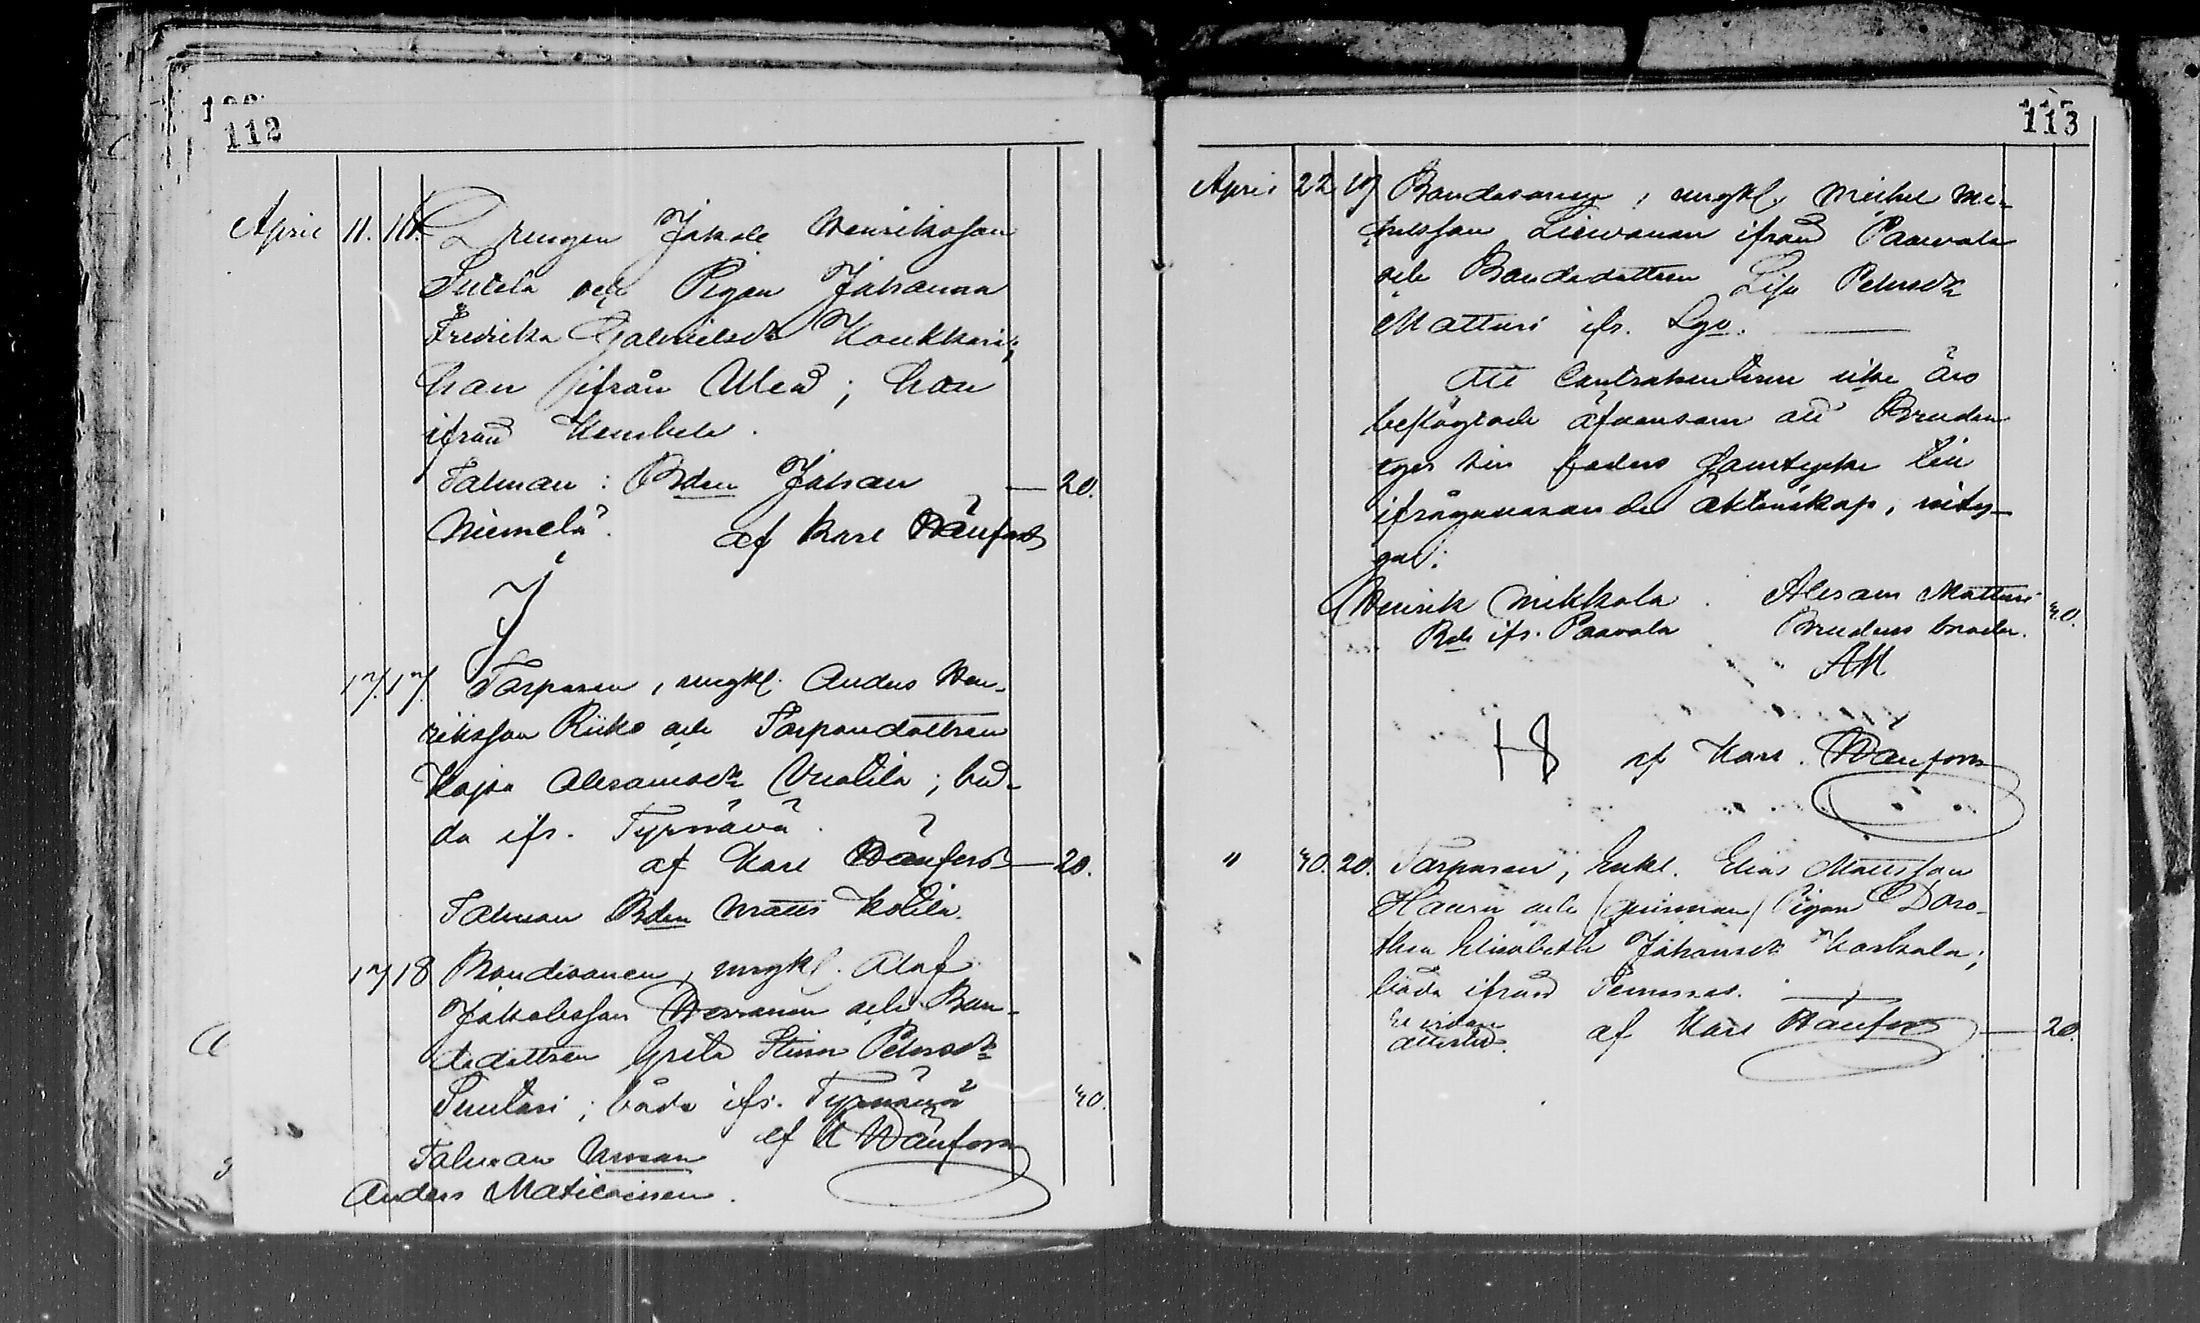 112
April 11. 16. Drengen Jakob Henriksson
Sutela och Pigan Johanna
Fredrika Gabrielsdr Koukkari;
han ifrån Uleå; hon
ifrån Kembele.
Talman: Bden Johan — 20.
Niemelä. af Karl Wänfors
17. 17. Torparen, ungkl. Anders Hen-
riksson Riiko och Torpardottren
Kajsa Abramsdr Vuolila; bå-
da ifr. Tyrnävä.
af Karl Wänfors — 20.
Talman Bden Matts Kolila.
17 18 Bondesonen, ungkl. Olof
Jakobsson och Bon-
dedottren Greta Stina Petersdr
Suutari; båda ifr. Tyrnävä 40.
Talman af K Wänfors
Anders Matilainen.
113
April 22 19 Bondesonen, ungkl. Michel Mi-
chelsson Liewonen ifrån Paavola
och Bondedottren Lisa Petersdr
Matturi ifr. Lgo.
Att Contrahenterna icke äro
beskögtade äfvensom att Bruden
eger sin faders samtycke till
ifrågavarande äktenskap, inty-
gas:
Henrik Mikkola Abram Matturi 40.
Bde ifr. Paavola Brudens broder.
AM
af Karl Wänfors
" 40. 20. Torparen, Enkl. Elias Mattsson
och (qvinnan) Pigan Doro-
thea Elisabeth Johansdr Karhula;
båda ifrån Temmes.
af Karl Wänfors — 20.